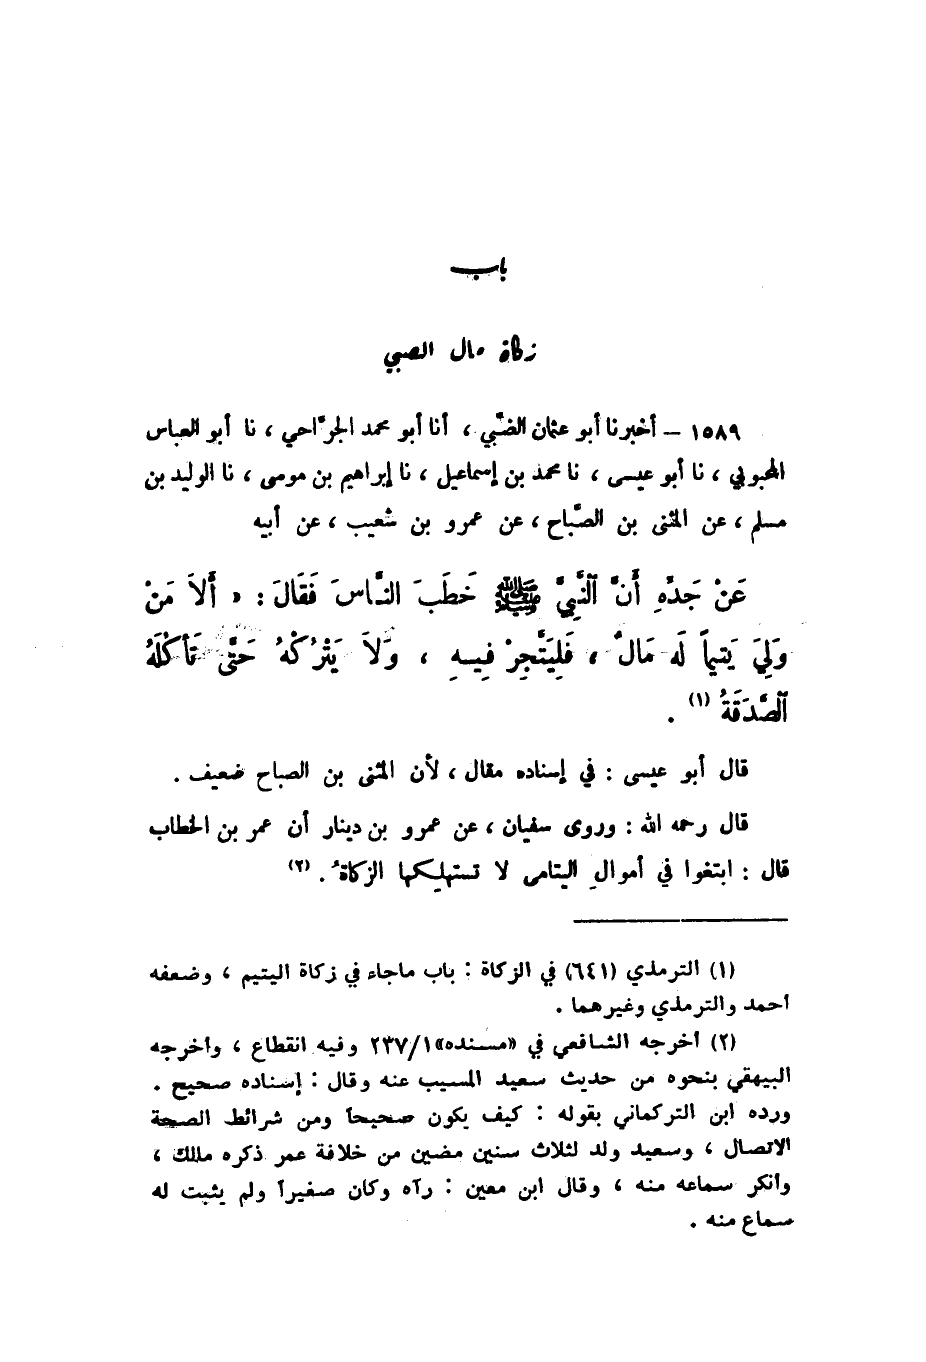 باب
زكاة مال الصبي
١٥٨٩ – أخبرنا أبو عثمان الضَّبِّي ، أنا أبو محمد الجرَّاحي ، نا أبو العباس
المحبوبي ، نا أبو عيسى ، نا محمد بن إسماعيل ، نا إبراهيم بن موسى ، نا الوليد بن
مسلم ، عن المثنى بن الصَّباح ، عن عمرو بن شعيب ، عن أبيه
عَنْ جَدِّهِ أَنَّ ٱلنَّبِيَّ ﷺ خَطَبَ النَّاسَ فَقَالَ : « أَلاَ مَنْ
وَلِيَ يَتيماً لَه مَالٌ ، فَلِيَتَّجِرْ فِيـهِ ، وَلاَ يَتْرُكْهُ حَتَّى تَأكُلَهُ
ٱلصَّدَقَةُ (١) .
قال أبو عيسى : في إسناده مقال ، لأن المثنى بن الصباح ضعيف .
قال رحمه الله : وروى سفيان ، عن عمرو بن دينار أن عمر بن الخطاب
قال : ابتغوا في أموالِ اليتامى لا تستهلِكها الزكاةُ . (٢)
(١) الترمذي (٦٤١) في الزكاة : باب ماجاء في زكاة اليتيم ، وضعفه
أحمد والترمذي وغيرهما .
(٢) أخرجه الشافعي في «مسنده» ٢٣٧/١ وفيه انقطاع ، وأخرجه
البيهقي بنحوه من حديث سعيد المسيب عنه وقال : إسناده صحيح .
ورده ابن التركماني بقوله : كيف يكون صحيحاً ومن شرائط الصحة
الاتصال ، وسعيد ولد لثلاث سنين مضين من خلافة عمر ذكره مالك ،
وأنكر سماعه منه ، وقال ابن معين : رآه وكان صغيراً ولم يثبت له
سماع منه .